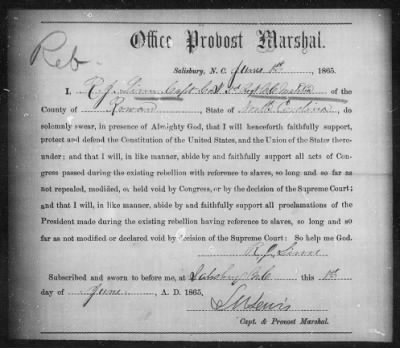 Reb.
Office Provost Marshal.
Salisbury, N. C. June 1st 1865.
I, R. J. Linn, Capt. of the
County of Rowan, State of North Carolina, do
solemnly swear, in presence of Almighty God, that I will henceforth faithfully support,
protect and defend the Constitution of the United States, and the Union of the States there-
under; and that I will, in like manner, abide by and faithfully support all acts of Con-
gress passed during the existing rebellion with reference to slaves, so long and so far as
not repealed, modified, or held void by Congress, or by the decision of the Supreme Court;
and that I will, in like manner, abide by and faithfully support all proclamations of the
President made during the existing rebellion having reference to slaves, so long and so
far as not modified or declared void by decision of the Supreme Court: So help me God.
R. J. Linn
Subscribed and sworn to before me, at Salisbury N.C. this 1st
day of June, A. D. 1865,
Lewis
Capt. & Provost Marshal.